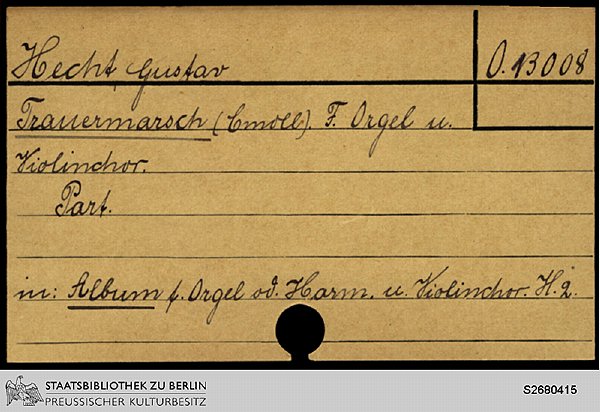 Hecht, Gustav
O. 13008
Trauermarsch (Cmoll). F. Orgel u.
Violinchor.
Part.
in: Album f. Orgel od. Harm. u. Violinchor. H. 2.
STAATSBIBLIOTHEK ZU BERLIN
PREUSSISCHER KULTURBESITZ
S2680415